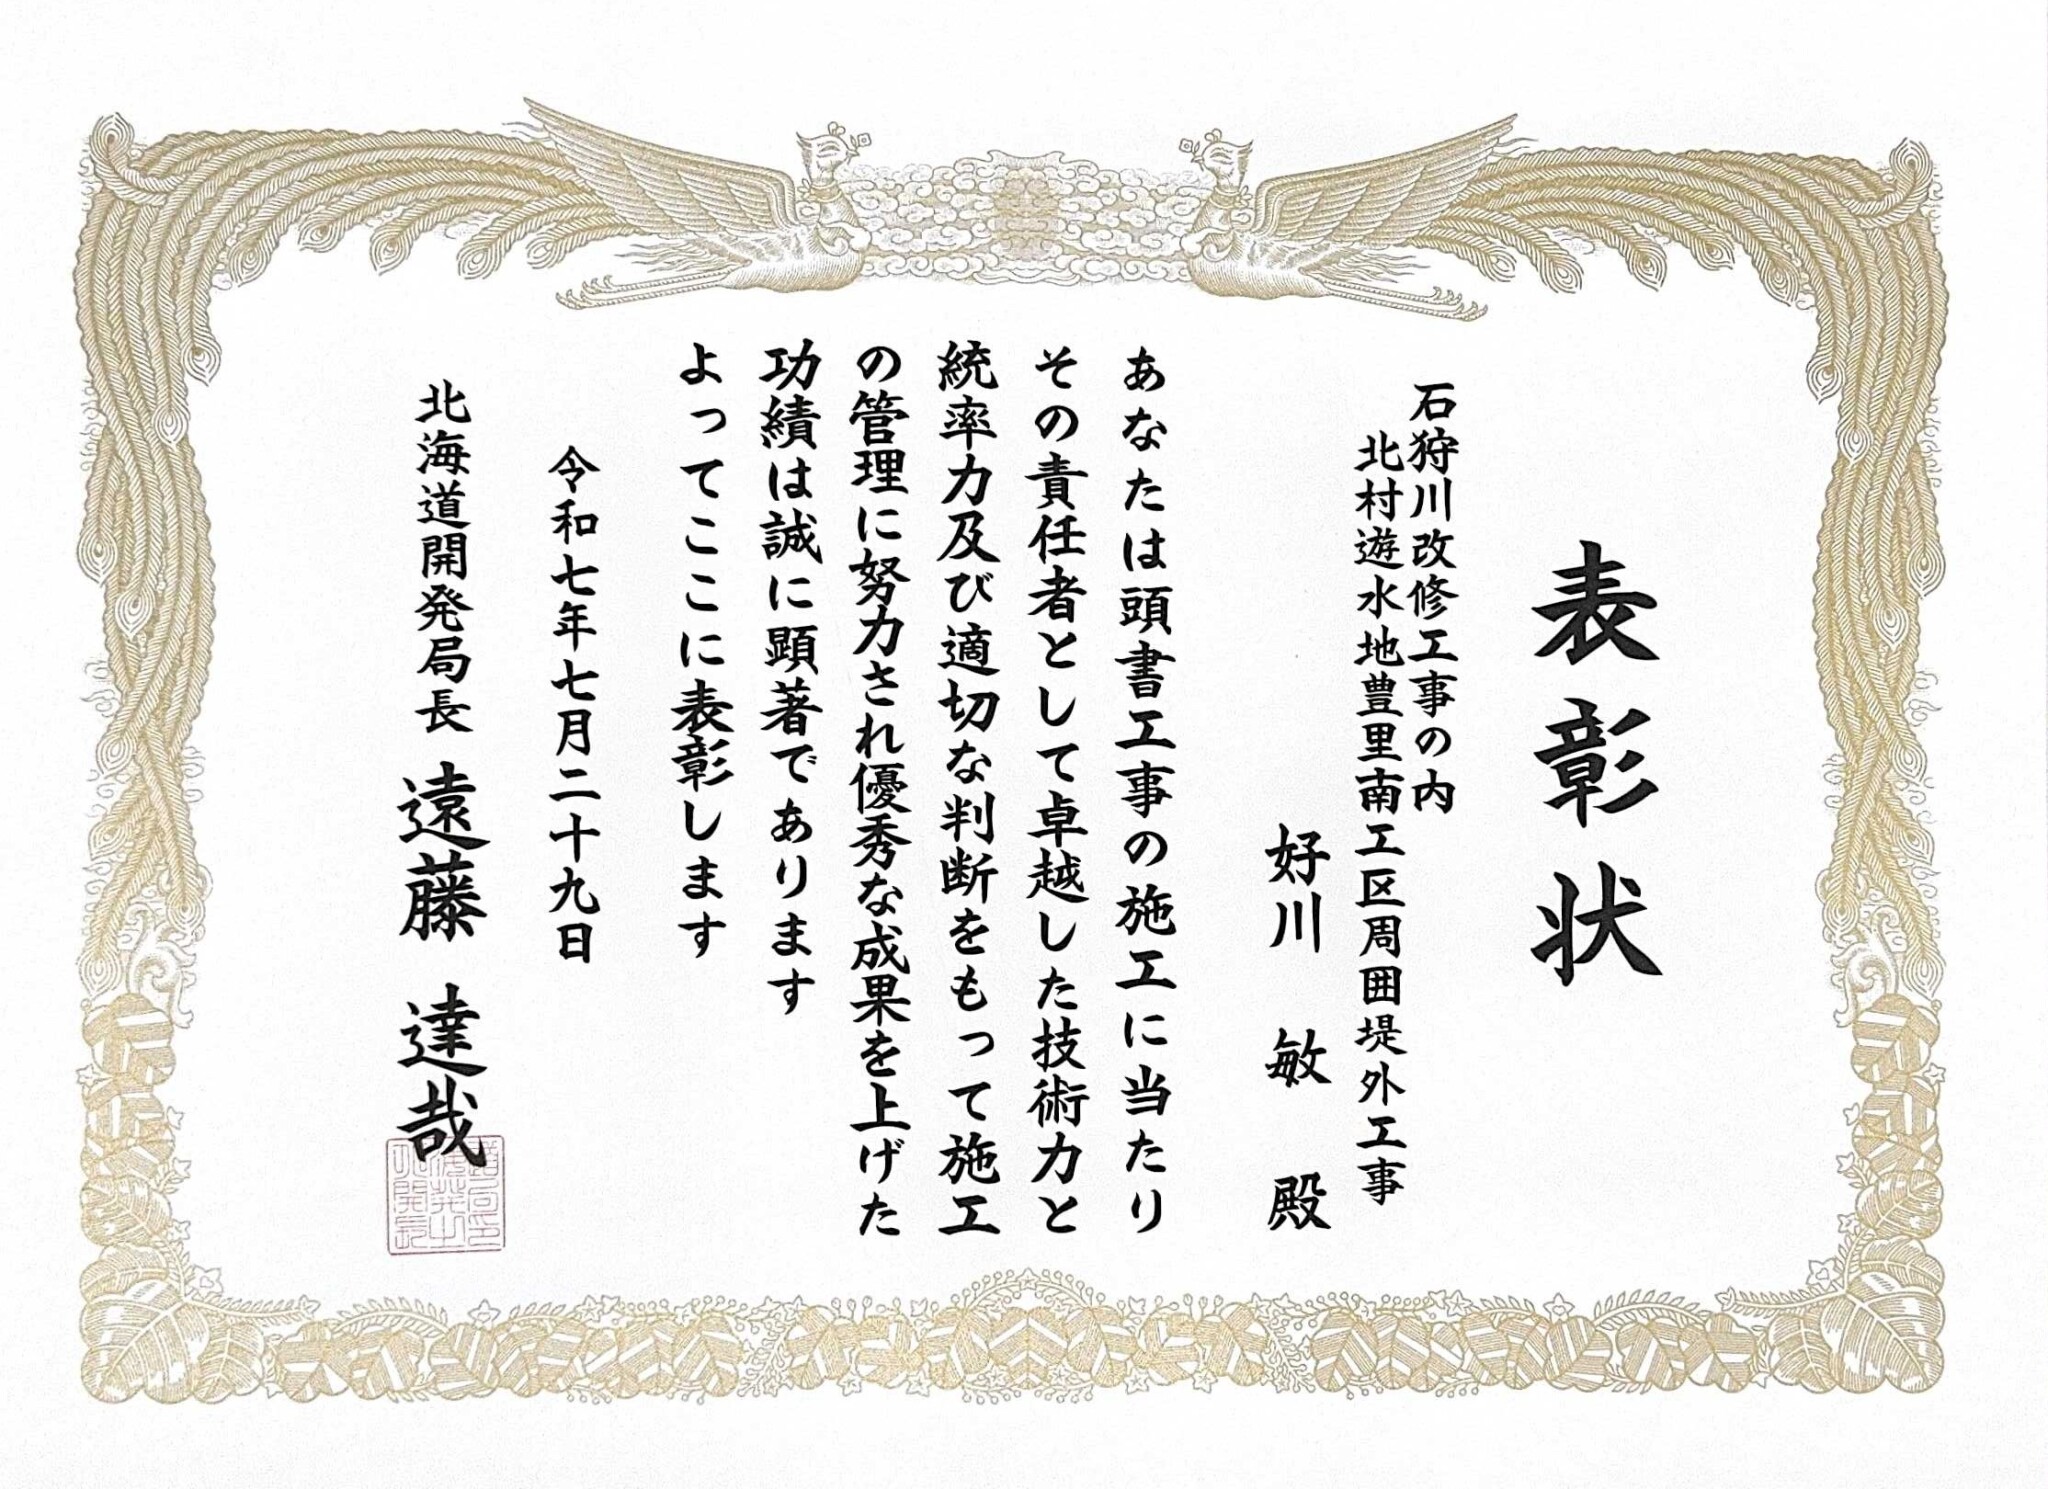 表彰状
石狩川改修工事の内
北村遊水地豊里南工区周囲堤外工事
好川 敏 殿
あなたは頭書工事の施工に当たり
その責任者として卓越した技術力と
統率力及び適切な判断をもって施工
の管理に努力され優秀な成果を上げた
功績は誠に顕著であります
よってここに表彰します
令和七年七月二十九日
北海道開発局長 遠藤 達哉